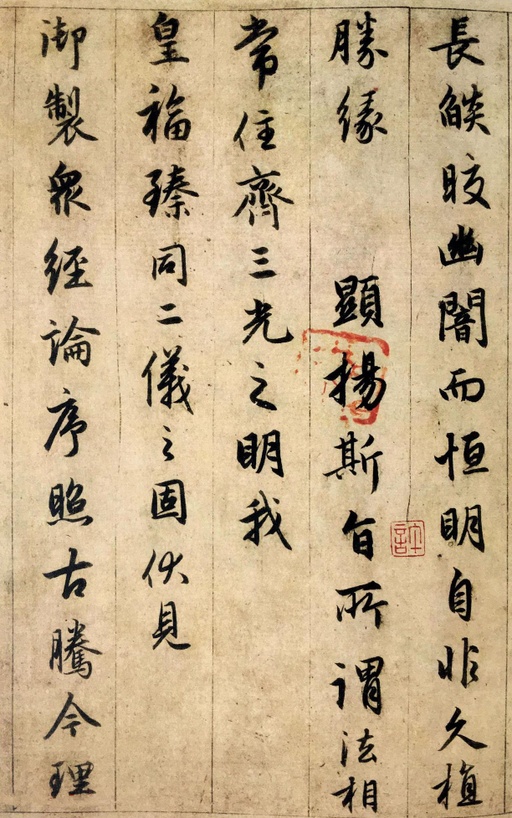 長燄皎幽闇而恒明自非久植
勝緣　顯揚斯旨所謂法相
常住齊三光之明我
皇福臻同二儀之固伏見
御製衆經論序照古騰今理